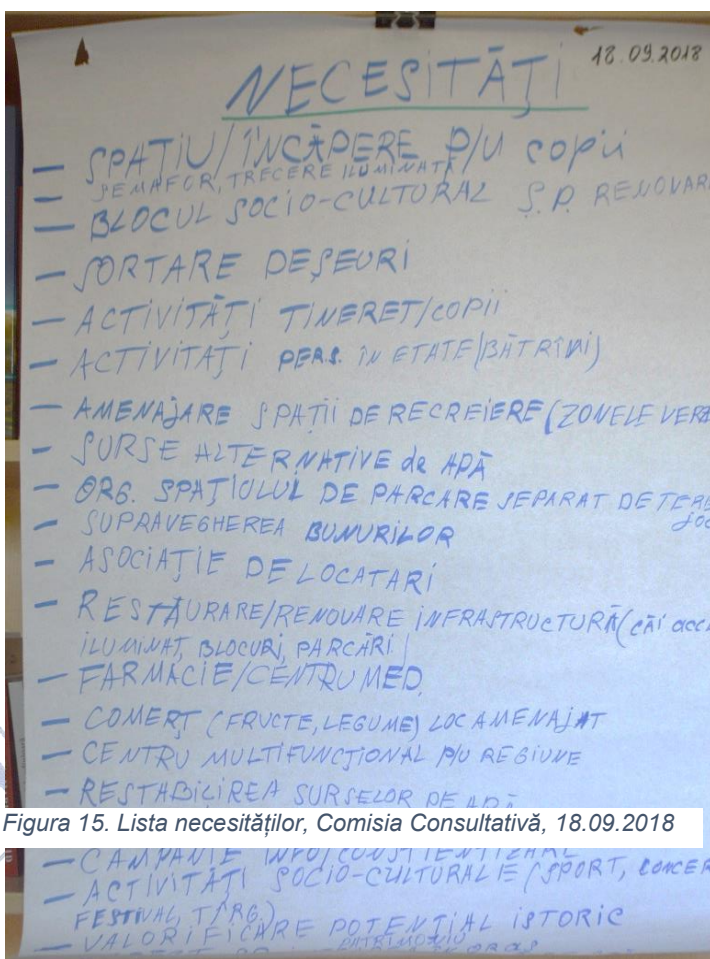 18.09.2018
NECESITĂȚI
— SPAȚIU/ÎNCĂPERE P/U copii
— SEMAFOR, TRECERE ILUMINATĂ
— BLOCUL SOCIO-CULTURAL Ș.P. RENOVARE
— SORTARE DEȘEURI
— ACTIVITĂȚI TINERET/COPII
— ACTIVITAȚI PERS. ÎN ETATE/BĂTRÎNI)
— AMENAJARE SPAȚII DE RECREIERE (ZONELE VERZ
— SURSE ALTERNATIVE de APĂ
— ORG. SPAȚIULUL DE PARCARE SEPARAT DE
— SUPRAVEGHEREA BUNURILOR
— ASOCIAȚIE DE LOCATARI
— RESTAURARE/RENOVARE INFRASTRUCTURĂ (CĂI acc
ILUMINAT, BLOCURI, PARCĂRI)
— FARMACIE/CENTRU MED.
— COMERȚ (FRUCTE, LEGUME) LOC AMENAJAT
— CENTRU MULTIFUNCȚIONAL P/U REGIUNE
— RESTABILIREA SURSELOR DE APĂ
Figura 15. Lista necesităților, Comisia Consultativă, 18.09.2018
— CAMPANIE INFO/CONȘTIENTIZARE
— ACTIVITĂȚI SOCIO-CULTURALE (SPORT, CONCER
FESTIVAL, TÂRG.)
— VALORIFICARE POTENȚIAL ISTORIC
PATRIMONIU